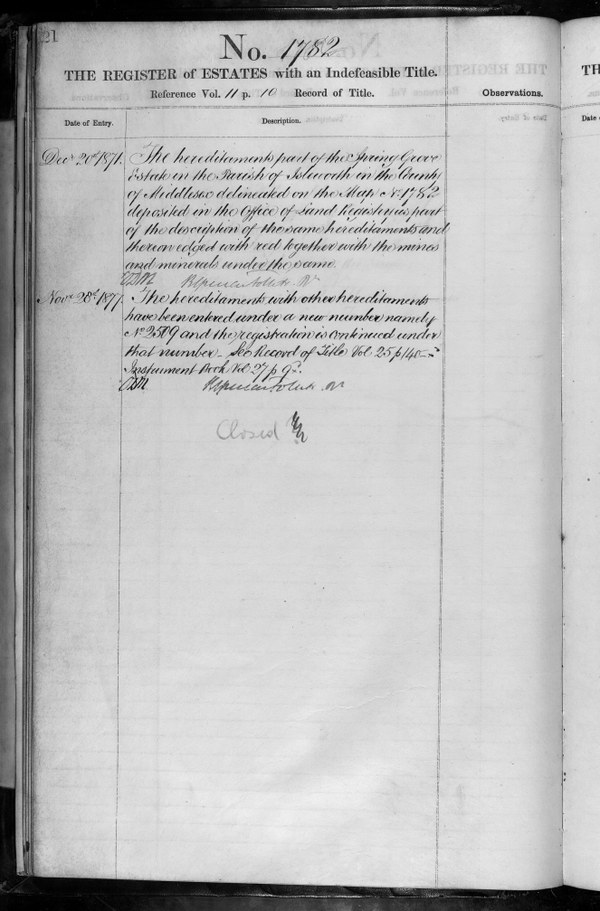 21
No. 1782
THE REGISTER of ESTATES with an Indefeasible Title.
Reference Vol. 11 p. 10 Record of Title.
Observations.
Date of Entry.
Description.
Decr 20th 1871.
The hereditaments part of the Spring Grove
Estate in the Parish of Isleworth in the County
of Middlesex delineated on the Map No 1782
deposited in the Office of Land Registry is part
of the description of the same hereditaments and
thereon edged with red together with the mines
and minerals under the same.
Novr 28th 1877.
The hereditaments with other hereditaments
have been entered under a new number namely
No 2509 and the registration is continued under
that number - See Record of Title Vol 25 p 140
Instrument Book Vol 27 p 92.
Closed
TH
Date